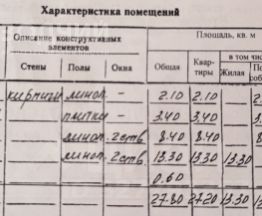 Характеристика помещений
Описание конструктивных элементов
Площадь, кв. м
Стены Полы Окна Общая Квартиры в том числе
Жилая
кирпичн линол. - 2.10 2.10
плитка - 3.40 3.40
линол. 2 ств 8.40 8.40
линол. 2 ств 13.30 13.30 13.30
0.60
27.80 27.20 13.30